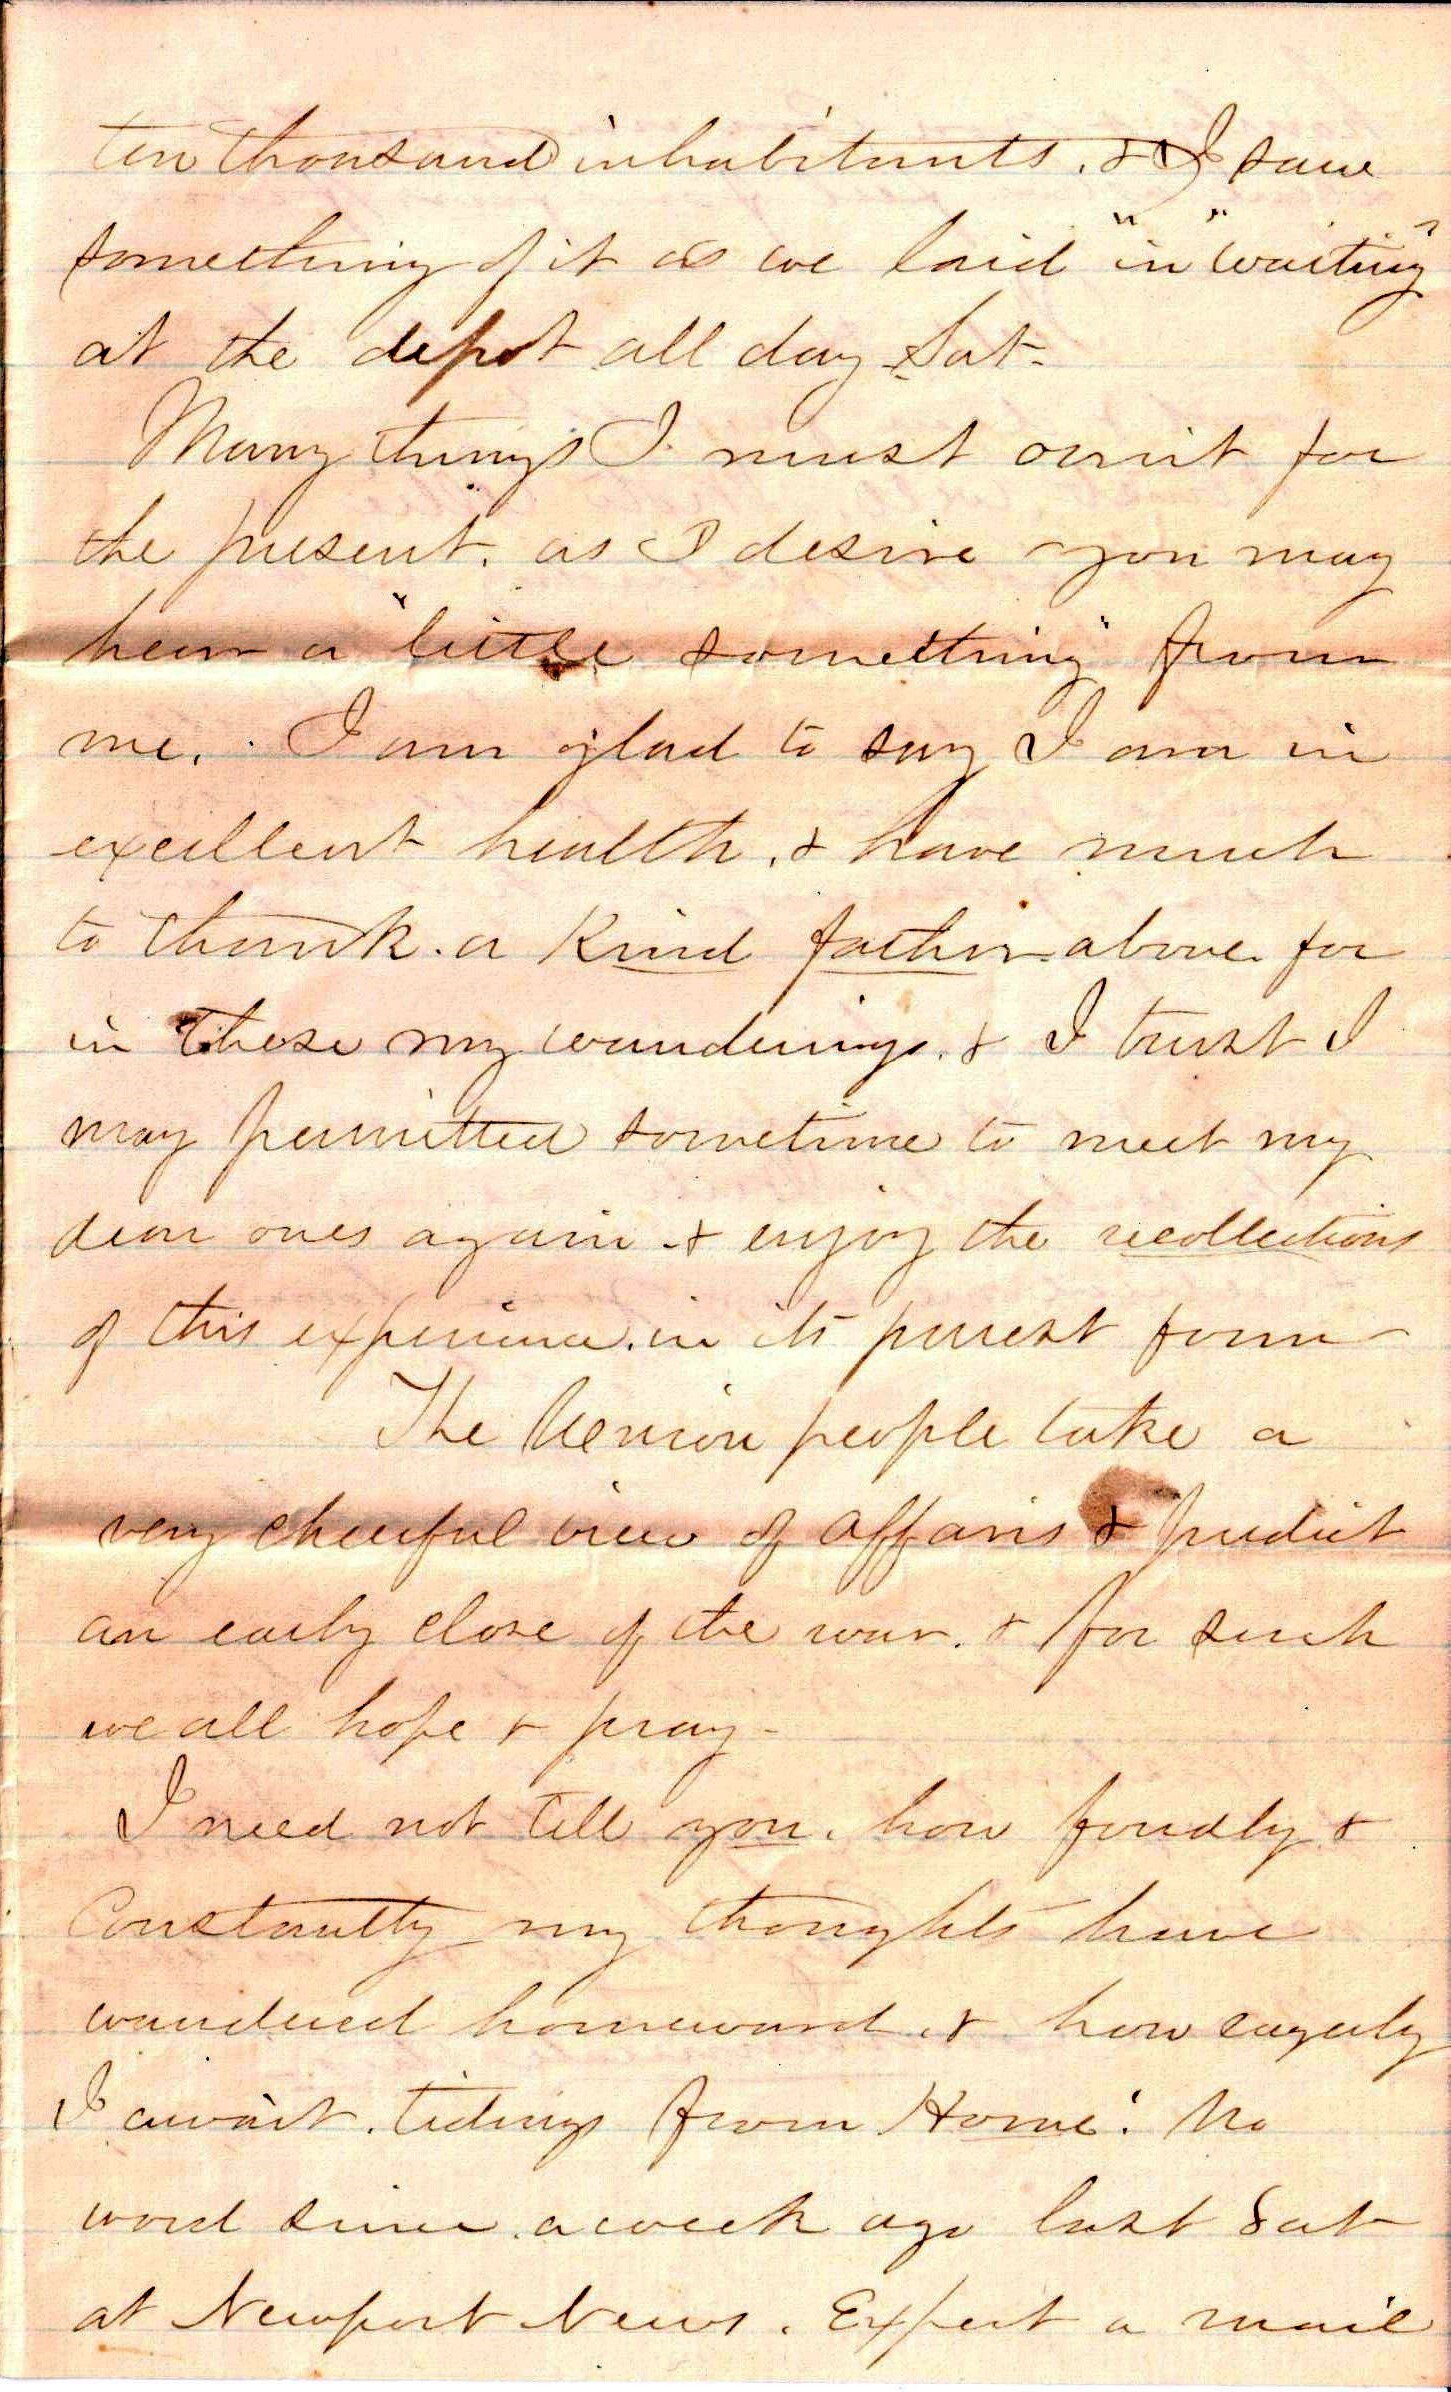 ten thousand inhabitants. & I saw
something of it as we laid "in" "waiting"
at the depot all day Sat-
Many things I must omit for
the present. as I desire you may
hear a "little something" from
me. I am glad to say I am in
excellent health. & have much
to thank. a Kind father above. for
in these my wanderings. & I trust I
may permitted sometime to meet my
dear ones again & enjoy the recollections
of this experience. in its purest form
The Union people take a
very cheerful view of affairs & predict
an early close of the war. & for such
we all hope & pray-
I need not tell you. how fondly &
Constantly my thoughts have
wandered homeward. & how eagerly
I await. tidings from Home. No
word since a week ago last Sat
at Newport News. Expect a mail